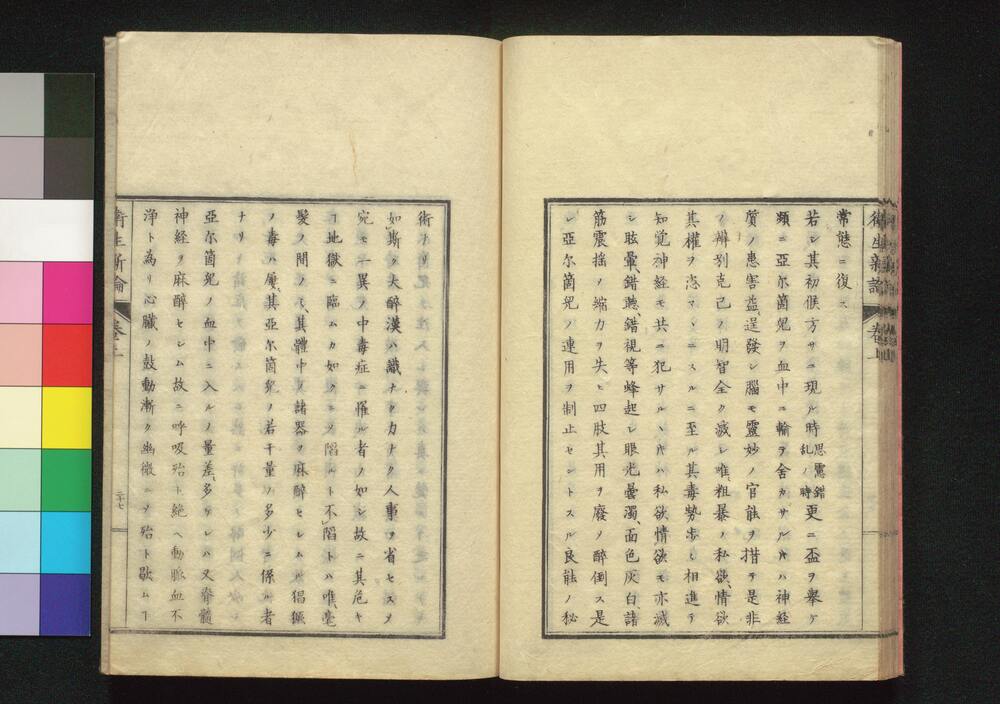 衛生新論 卷上
常態ニ復ス
若シ其初候方サニ現ル時思慮錯乱ノ時更ニ盃ヲ擧ケ
頻ニ亞尔箇兒ヲ血中ニ輸テ舍カサル片ハ神経
質ノ患害益逞發シ腦モ靈妙ノ官能ヲ措テ是非
ノ辨別克己ノ明智全ク滅シ唯粗暴ノ私欲情欲
其權ヲ恣マヽニスルニ至ル其毒勢歩シ相進テ
知覚神経モ共ニ犯サルヽ片ハ私欲情欲モ亦滅
シ眩暈、錯聴、錯視等蜂起シ眼光曇濁、面色灰白、諸
筋震揺ノ縮力ヲ失ヒ四肢其用ヲ廢ノ醉倒ス是
レ亞尔箇兒ノ連用ヲ制止セントスル良能ノ秘
術ナリ
如斯ク大醉漢ハ識ナク力ナク人事ヲ省セスメ
宛モ一異ノ中毒症ニ罹ル者ノ如シ故ニ其危キ
ヿ地獄ニ臨ムカ如クニメ陷ルト不陷トハ唯毫
髪ノ間ノミ、其體中ノ諸器ヲ麻醉セシムル猖獗
ノ毒ハ屢其亞尔箇兒ノ若干量ノ多少ニ係ル者
ナリ
亞尔箇兒ノ血中ニ入ルノ量差多ケレハ又脊髓
神経ヲ麻醉セシム故ニ呼吸殆ト絶ヘ動脈血不
浄ト為リ心臓ノ鼓動漸ク幽微ニメ殆ト歇ムヿ
衛生新論 卷上 二十七